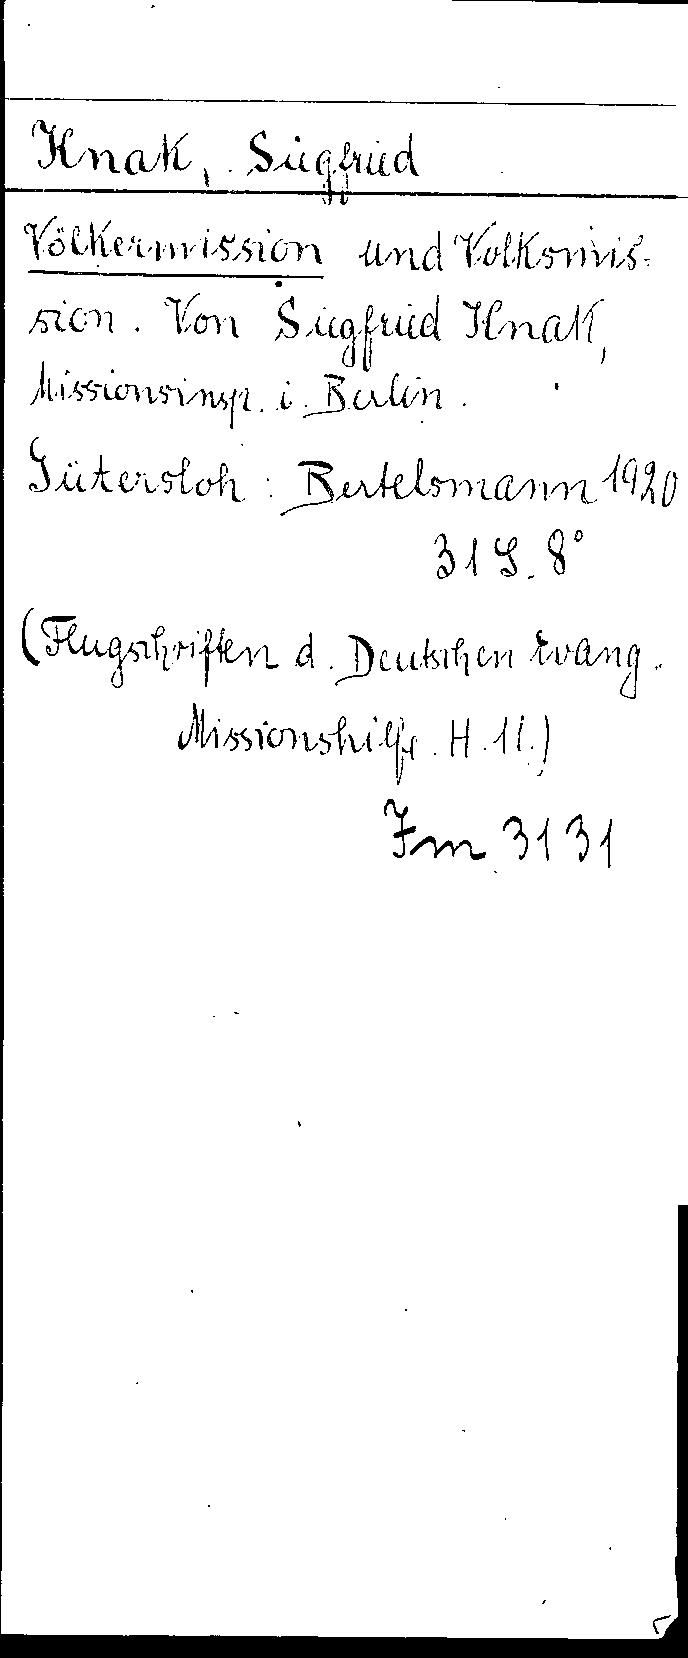 Knak, Siegfried
Völkermission und Volksmis-
sion. Von Siegfried Knak,
Missionsinsp. i. Berlin.
Gütersloh: Bertelsmann 1920
31 S. 8°
(Flugschriften d. Deutschen Evang.
Missionshilfe. H. 11.)
Fm 3131